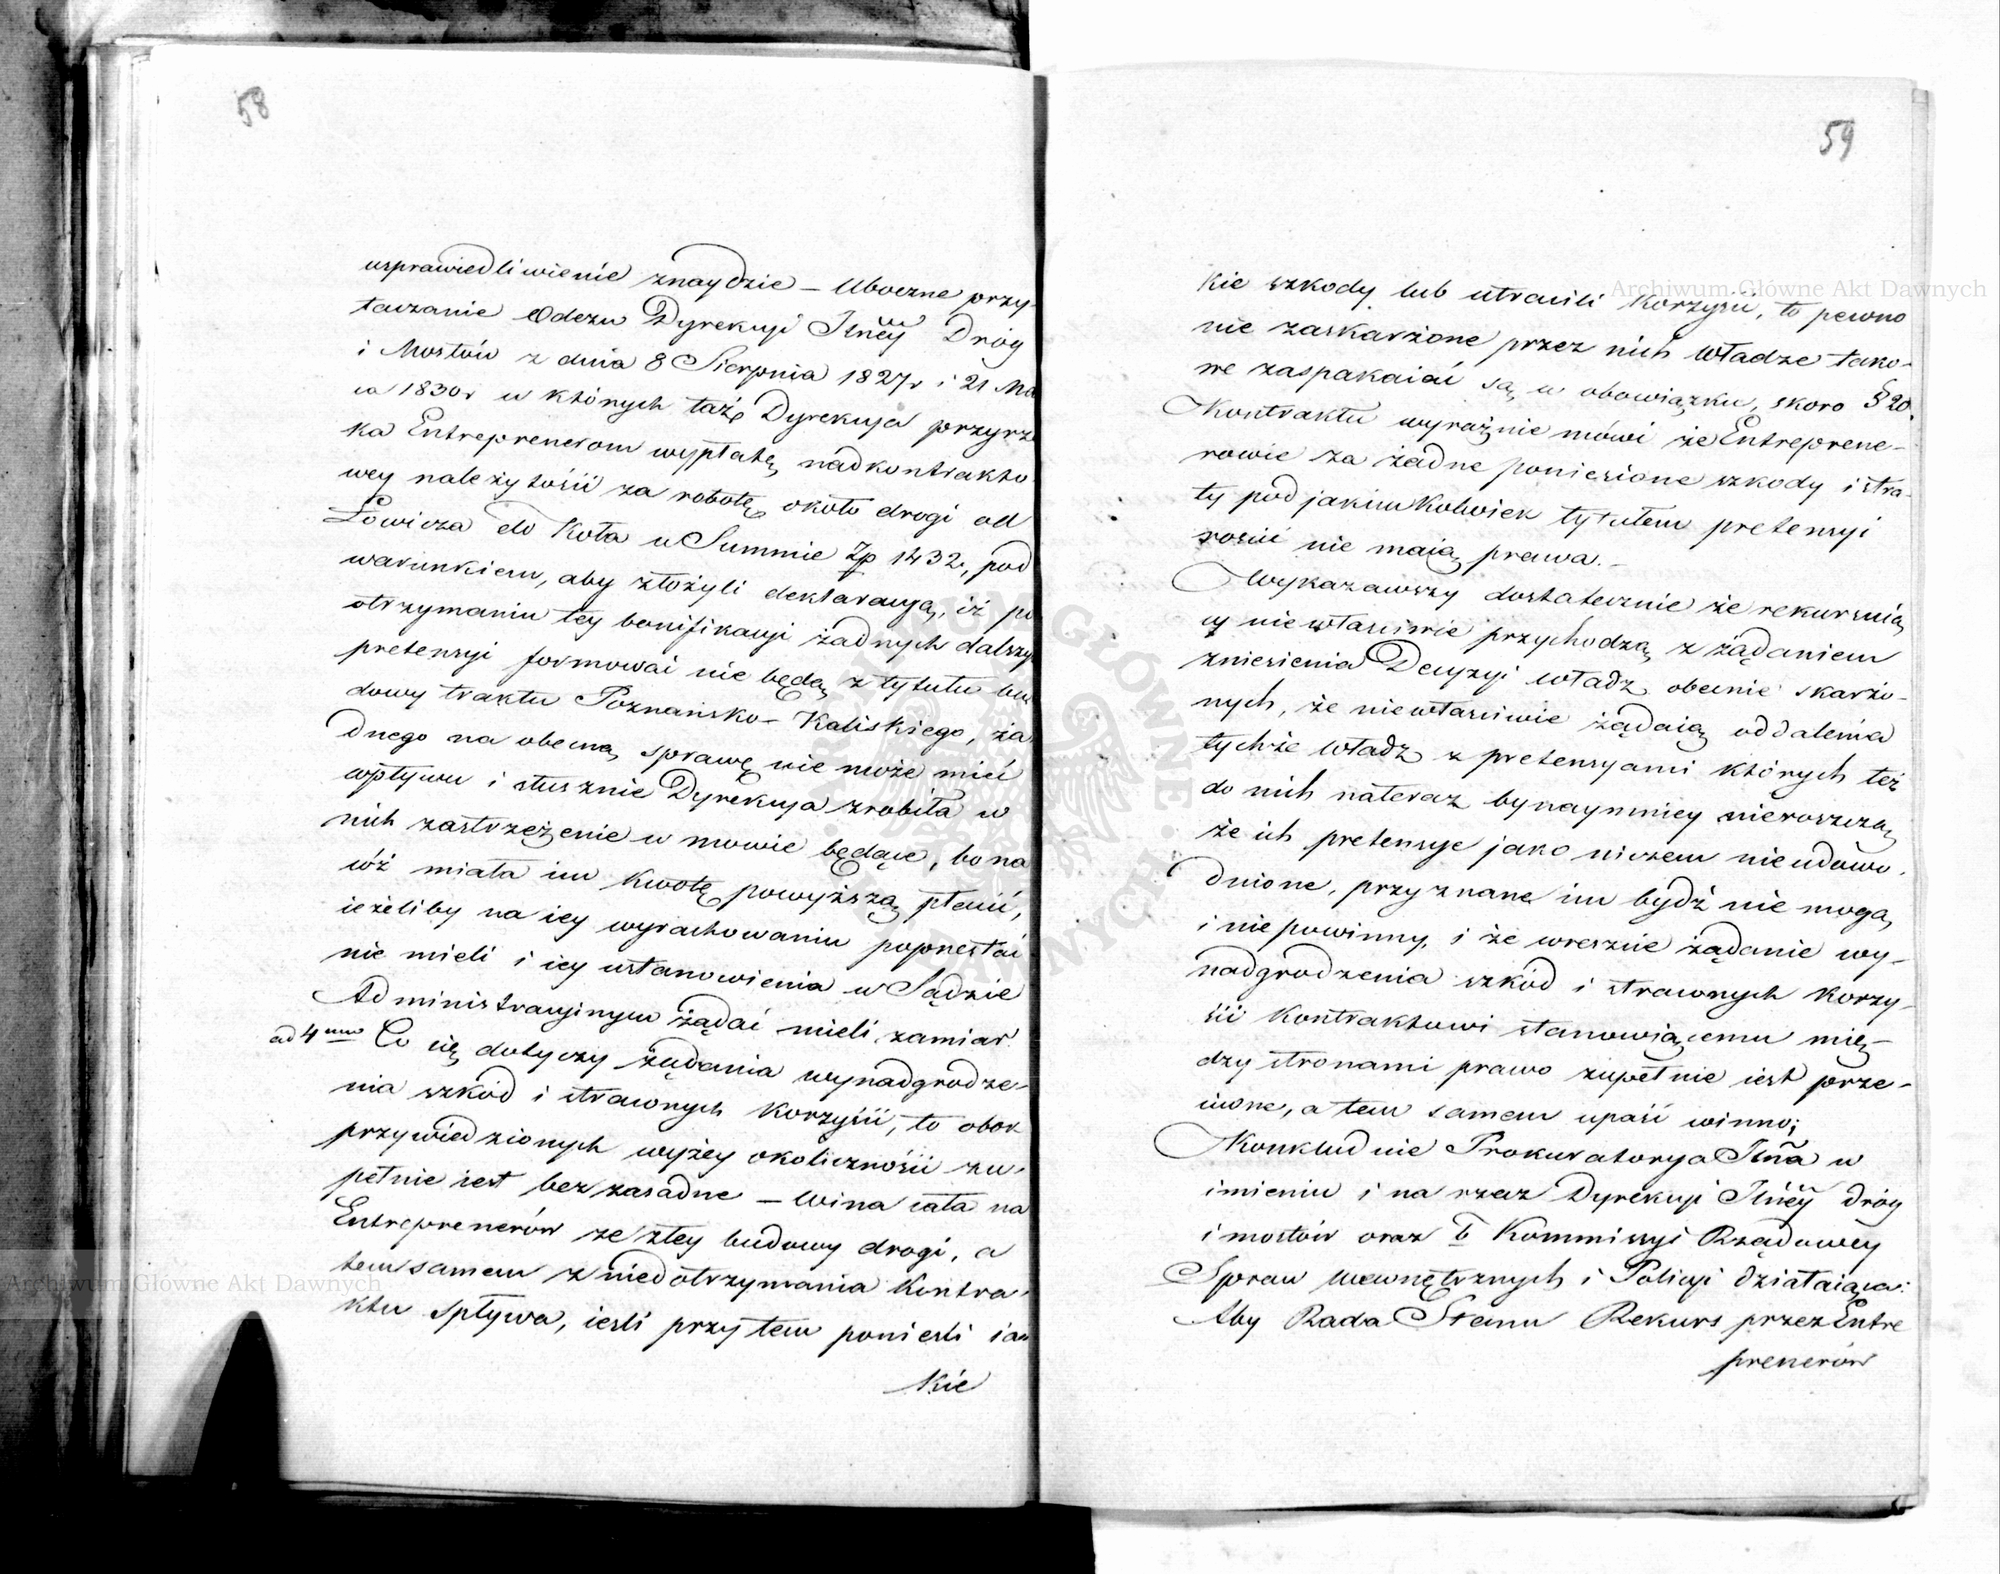 58
usprawiedliwienie znaydzie – Uboczne przy-
taczanie Odezw Dyrekcyi Jlnéy Dróg
i Mostów z dnia 8 Sierpnia 1827r i 21 Ma
ca 1830r w których taż Dyrekcya przyrz
ka Entreprenerom wypłatę nadkontrakto
wey należytości za robotę około drogi od
Łowicza do Koła w Summie Zp 1432, pod
warunkiem, aby złożyli deklaracyą, iż po
otrzymaniu tey bonifikacyi żadnych dalszy
pretensyi formować nie będą z tytułu bu
dowy traktu Poznańsko-Kaliskiego, ża
dnego na obecną sprawę nie może mieć
wpływu i słusznie Dyrekcya zrobiła w
nich zastrzeżenie w mowie będące, bo na
cóż miała im kwotę powyższą płacić,
ieżeliby na iey wyrachowaniu poprzestać
nie mieli i iey ustanowienia w Sądzie
Administracyinym żądać mieli zamiar.
ad 4um Co się dotyczy żądania wynadgrodze-
nia szkód i straconych korzyści, to obok
przywiedzionych wyżey okoliczności zu-
pełnie iest bezzasadne – Wina cała na
Entreprenerów ze złey budowy drogi, a
tem samem z niedotrzymania Kontra-
ktu spływa, iesli przytem ponieśli iak
kie
59
kie szkody lub utracili korzyści, to pewno
nie zaskarżone przez nich Władze tako-
we zaspakaiać są w obowiązku, skoro § 20
Kontraktu wyraźnie mówi że Entreprene-
rowie za żadne poniesione szkody i stra-
ty pod jakimkolwiek tytułem pretensyi
rościć nie maią prawa. –
Wykazawszy dostatecznie że rekursuią
cy niewłaściwie przychodzą z żądaniem
zniesienia Decyzyi władz obecnie skarżo-
nych, że niewłaściwie żądaią oddalenia
tychże władz z pretensyami których też
do nich nateraz bynaymniey nieroszczą
że ich pretensye jako niczem nieudowo-
dnione, przyznane im bydź nie mogą
i nie powinny, i że wreszcie żądanie wy-
nadgrodzenia szkód i straconych korzy-
ści kontraktowi stanowiącemu mię-
dzy stronami prawo zupełnie iest prze-
ciwne, a tem samem upaść winno;
Konkludnie Prokuratorya Jlna w
imieniu i na rzecz Dyrekcyi Jlnéy dróg
i mostów oraz b Kommissyi Rządowéy
Spraw Wewnętrznych i Policyi działaiąca:
Aby Rada Stanu Rekurs przez Entre
prenerów
Archiwum Główne Akt Dawnych
Archiwum Główne Akt Dawnych